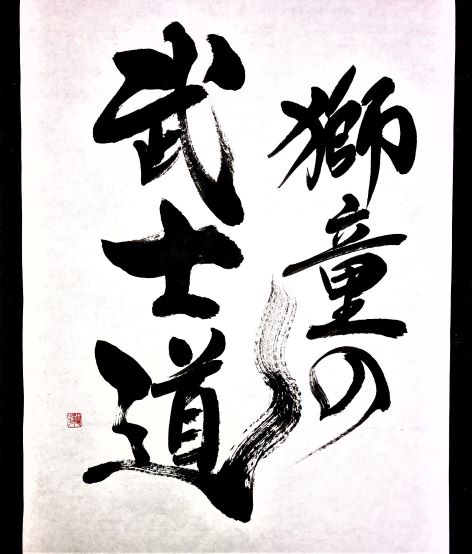 獅童の
武士道